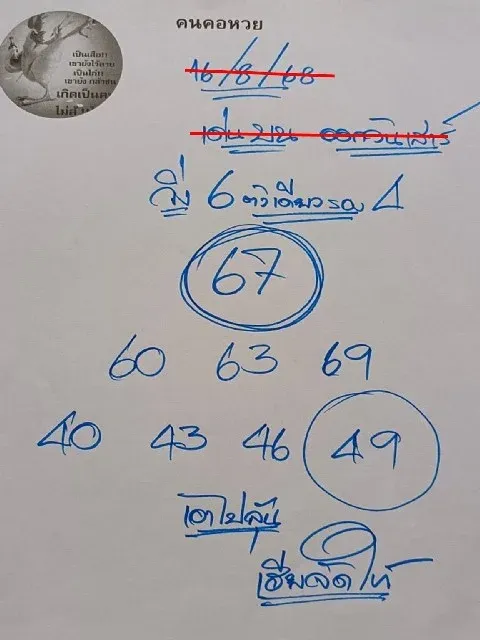 คนคอหวย
เป็นเสือก
เขายังไว้ลาย
เป็นไก่ก
เขายัง
เกิดเป็นค
16/8/68
เด่นบน ออกวันเสาร์
6 ตัวเดียวรอง 4
67
60 63 69
40 43 46 49
เอาไปลุ้น
เฮียจัดให้